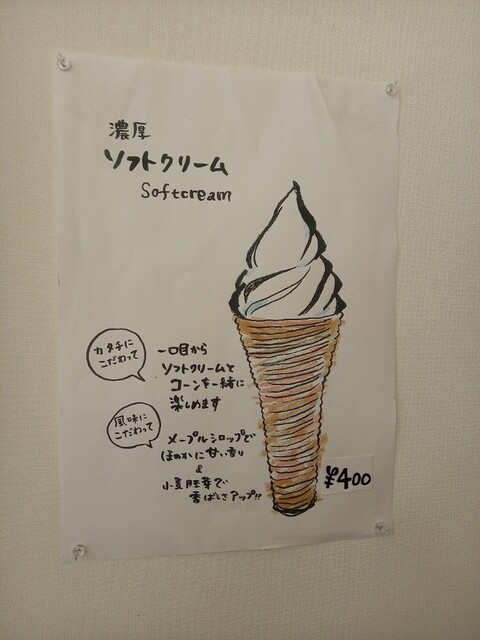 濃厚
ソフトクリーム
Softcream
カタチに
こだわって
一口目から
ソフトクリームと
コーンを一緒に
楽しめます
風味に
こだわって
メープルシロップで
ほのかに甘い香り
&
小麦胚芽で
香ばしさアップ!!
¥400